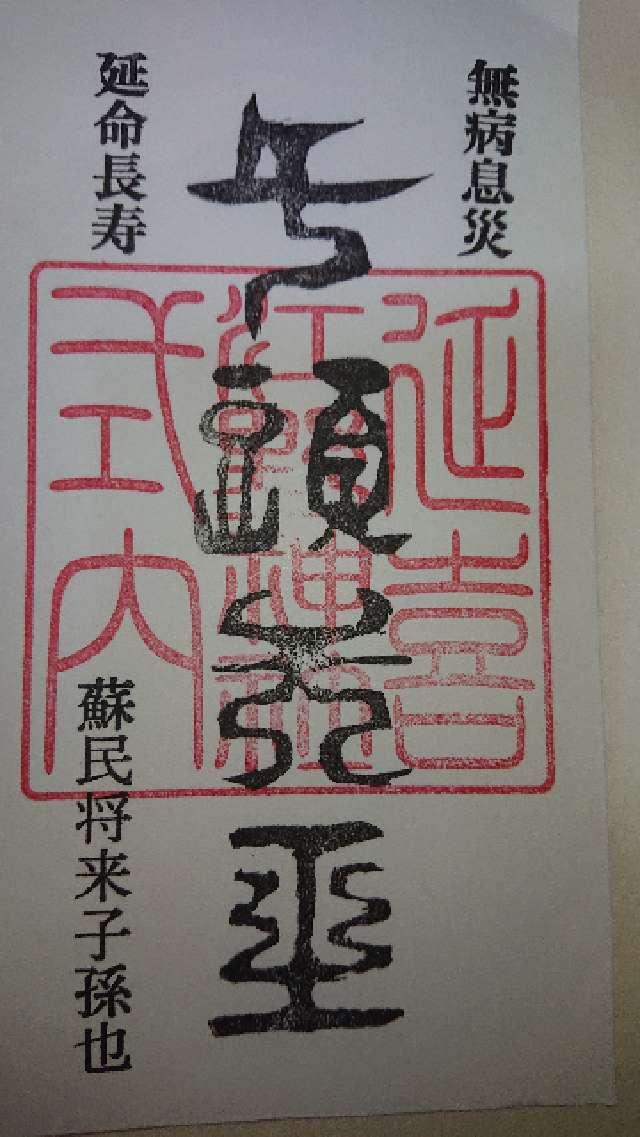 無病息災
牛頭天王
延命長寿
蘇民将来子孫也
延喜
江野神社
式内